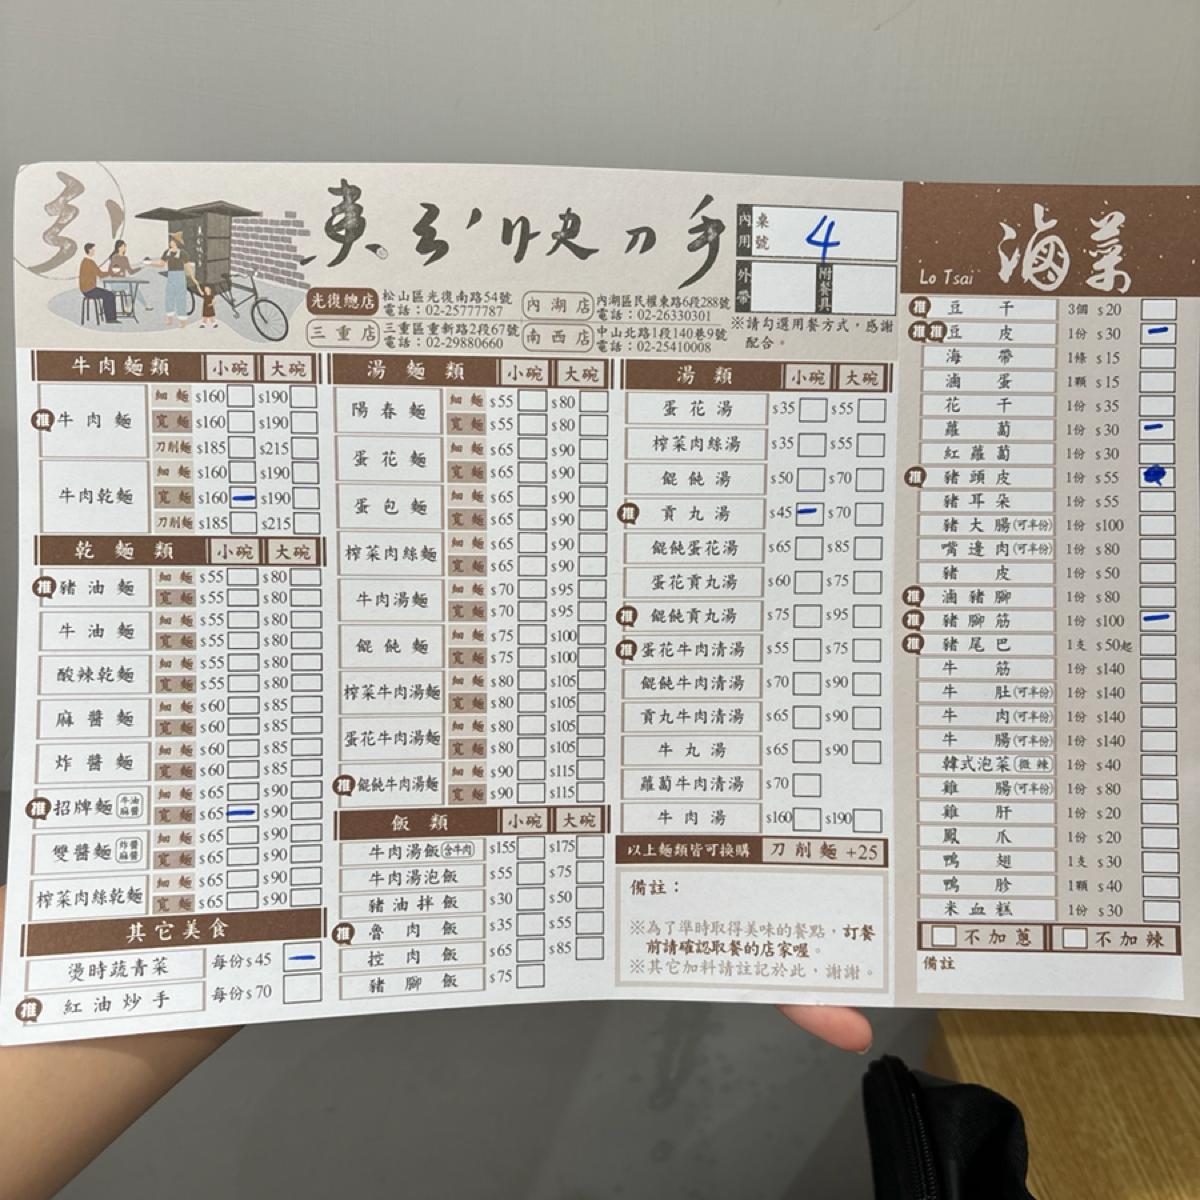 東引快刀手
內用 桌號 4
外帶 附餐具
※請勾選用餐方式，感謝配合。
光復總店 松山區光復南路54號
電話：02-25777787
內湖店 內湖區民權東路6段288號
電話：02-26330301
三重店 三重區重新路2段67號
電話：02-29880660
南西店 中山北路1段140巷9號
電話：02-25410008
牛肉麵類 小碗 大碗
推 牛肉麵 細麵 $160 $190
寬麵 $160 $190
刀削麵 $185 $215
牛肉乾麵 細麵 $160 $190
寬麵 $160 $190
刀削麵 $185 $215
乾麵類 小碗 大碗
推 豬油麵 細麵 $55 $80
寬麵 $55 $80
牛油麵 細麵 $55 $80
寬麵 $55 $80
酸辣乾麵 細麵 $55 $80
寬麵 $55 $80
麻醬麵 細麵 $60 $85
寬麵 $60 $85
炸醬麵 細麵 $60 $85
寬麵 $60 $85
推 招牌麵 牛油麻醬 細麵 $65 $90
寬麵 $65 $90
雙醬麵 炸醬麻醬 細麵 $65 $90
寬麵 $65 $90
榨菜肉絲乾麵 細麵 $65 $90
寬麵 $65 $90
其它美食
燙時蔬青菜 每份$45
推 紅油炒手 每份$70
湯麵類 小碗 大碗
陽春麵 細麵 $55 $80
寬麵 $55 $80
蛋花麵 細麵 $65 $90
寬麵 $65 $90
蛋包麵 細麵 $65 $90
寬麵 $65 $90
榨菜肉絲麵 細麵 $65 $90
寬麵 $65 $90
牛肉湯麵 細麵 $70 $95
寬麵 $70 $95
餛飩麵 細麵 $75 $100
寬麵 $75 $100
榨菜牛肉湯麵 細麵 $80 $105
寬麵 $80 $105
蛋花牛肉湯麵 細麵 $80 $105
寬麵 $80 $105
推 餛飩牛肉湯麵 細麵 $90 $115
寬麵 $90 $115
飯類 小碗 大碗
牛肉湯飯(含牛肉) $155 $175
牛肉湯泡飯 $55 $75
豬油拌飯 $30 $50
推 魯肉飯 $35 $55
控肉飯 $65 $85
豬腳飯 $75
湯類 小碗 大碗
蛋花湯 $35 $55
榨菜肉絲湯 $35 $55
餛飩湯 $50 $70
推 貢丸湯 $45 $70
餛飩蛋花湯 $65 $85
蛋花貢丸湯 $60 $75
推 餛飩貢丸湯 $75 $95
推 蛋花牛肉清湯 $55 $75
餛飩牛肉清湯 $70 $90
貢丸牛肉清湯 $65 $90
牛丸湯 $65 $90
蘿蔔牛肉清湯 $70
牛肉湯 $160 $190
以上麵類皆可換購 刀削麵+25
備註：
※為了準時取得美味的餐點，訂餐
前請確認取餐的店家喔。
※其它加料請註記於此，謝謝。
Lo Tsai 滷菜
推 豆干 3個 $20
推 推 豆皮 1份 $30
海帶 1條 $15
滷蛋 1顆 $15
花干 1份 $35
蘿蔔 1份 $30
紅蘿蔔 1份 $30
推 豬頭皮 1份 $55
豬耳朵 1份 $55
豬大腸(可半份) 1份 $100
嘴邊肉(可半份) 1份 $80
豬皮 1份 $50
推 滷豬腳 1份 $80
推 豬腳筋 1份 $100
推 豬尾巴 1支 $50起
牛筋 1份 $140
牛肚(可半份) 1份 $140
牛肉(可半份) 1份 $140
牛腸(可半份) 1份 $140
韓式泡菜(微辣) 1份 $40
雞腸(可半份) 1份 $80
雞肝 1份 $20
鳳爪 1份 $20
鴨翅 1支 $30
鴨胗 1顆 $40
米血糕 1份 $30
不加蔥 不加辣
備註